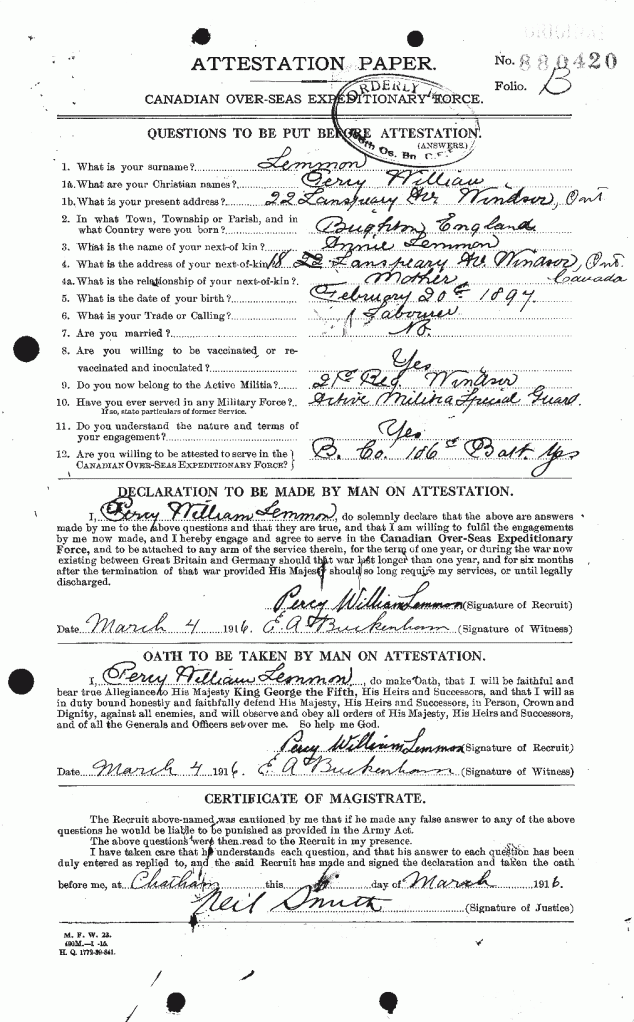 No. 880420
ATTESTATION PAPER.
Folio. B
CANADIAN OVER-SEAS EXPEDITIONARY FORCE.
ORDERLY
Bn C.E.F.
QUESTIONS TO BE PUT BEFORE ATTESTATION.
(ANSWERS.)
1. What is your surname? Lemmon
1a. What are your Christian names? Percy William
1b. What is your present address? 22 Lanspeary Ave Windsor, Ont
2. In what Town, Township or Parish, and in
what Country were you born? Brighton, England
3. What is the name of your next-of kin? Annie Lemmon
4. What is the address of your next-of-kin? 18 22 Lanspeary Ave Windsor, Ont.
Canada
4a. What is the relationship of your next-of-kin? Mother
5. What is the date of your birth? February 20th 1897.
6. What is your Trade or Calling? Labourer
7. Are you married? No.
8. Are you willing to be vaccinated or re-
vaccinated and inoculated? Yes
9. Do you now belong to the Active Militia? 21st Reg. Windsor
10. Have you ever served in any Military Force? Active Militia Special Guard.
If so, state particulars of former Service.
11. Do you understand the nature and terms of
your engagement? Yes
12. Are you willing to be attested to serve in the
CANADIAN OVER-SEAS EXPEDITIONARY FORCE? B. Co. 186th Batt. Yes
DECLARATION TO BE MADE BY MAN ON ATTESTATION.
I, Percy William Lemmon, do solemnly declare that the above are answers
made by me to the above questions and that they are true, and that I am willing to fulfil the engagements
by me now made, and I hereby engage and agree to serve in the Canadian Over-Seas Expeditionary
Force, and to be attached to any arm of the service therein, for the term of one year, or during the war now
existing between Great Britain and Germany should that war last longer than one year, and for six months
after the termination of that war provided His Majesty should so long require my services, or until legally
discharged.
Percy William Lemmon (Signature of Recruit)
Date March 4 1916. E. A. Buckenham (Signature of Witness)
OATH TO BE TAKEN BY MAN ON ATTESTATION.
I, Percy William Lemmon, do make Oath, that I will be faithful and
bear true Allegiance to His Majesty King George the Fifth, His Heirs and Successors, and that I will as
in duty bound honestly and faithfully defend His Majesty, His Heirs and Successors, in Person, Crown and
Dignity, against all enemies, and will observe and obey all orders of His Majesty, His Heirs and Successors,
and of all the Generals and Officers set over me. So help me God.
Percy William Lemmon (Signature of Recruit)
Date March 4 1916. E. A. Buckenham (Signature of Witness)
CERTIFICATE OF MAGISTRATE.
The Recruit above-named was cautioned by me that if he made any false answer to any of the above
questions he would be liable to be punished as provided in the Army Act.
The above questions were then read to the Recruit in my presence.
I have taken care that he understands each question, and that his answer to each question has been
duly entered as replied to, and the said Recruit has made and signed the declaration and taken the oath
before me, at Chatham this day of March 1916.
Neil Smith (Signature of Justice)
M. F. W. 23.
H. Q. 1772-39-841.